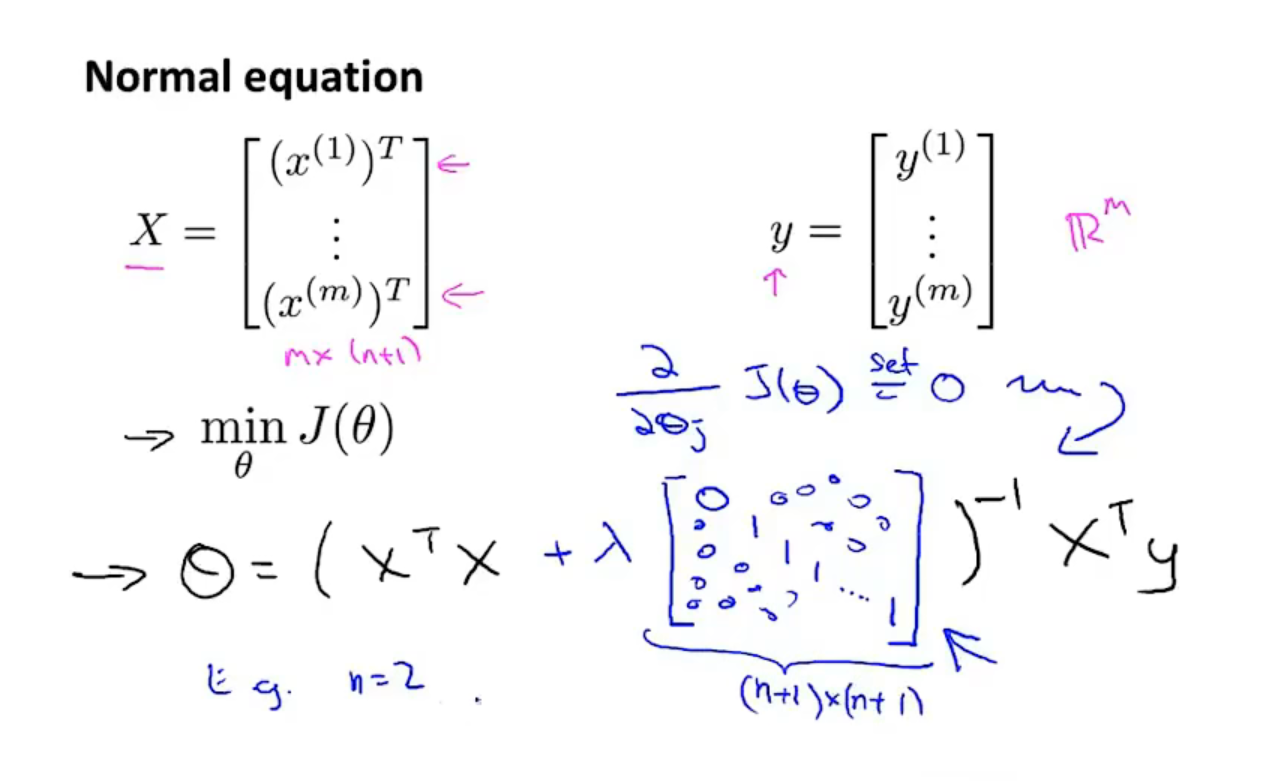 Normal equation
X = [(x^(1))^T ⋮ (x^(m))^T]
m×(n+1)
y = [y^(1) ⋮ y^(m)] ℝ^m
∂/∂θj J(θ) set = 0
→ min_θ J(θ)
→ θ = (X^T X + λ [0 0 0 0 0 0 1 0 0 0 1 0 0 0 1 0 0 0 ... 1])^-1 X^T y
(n+1)×(n+1)
E.g. n=2